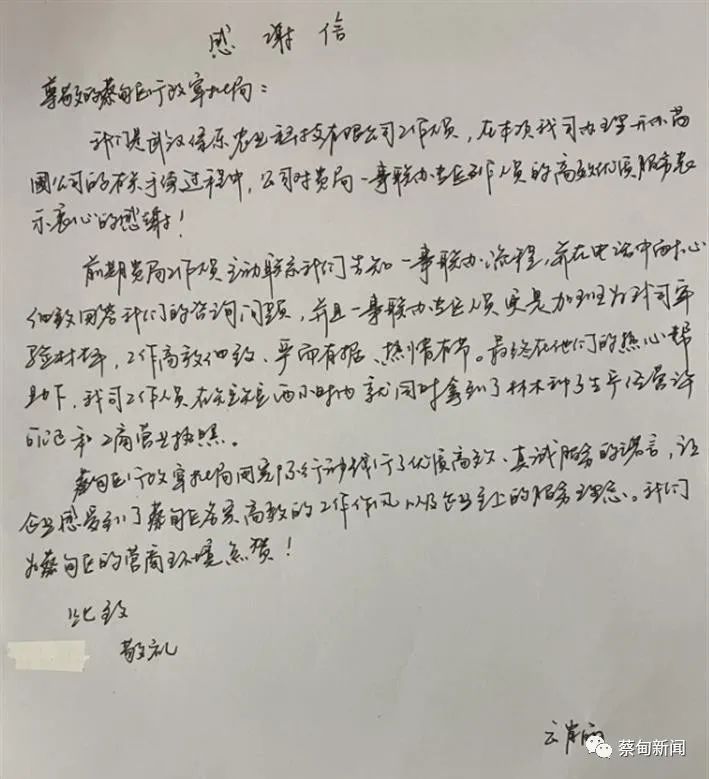 感谢信
尊敬的蔡甸区行政审批局：
我们是武汉 原农业科技有限公司工作人员，在本项我司办理开办苗
圃公司的有关手续过程中，公司对贵局一事联办专区工作人员的高效优质服务表
示衷心的感谢！
前期贵局工作人员主动联系我们告知一事联办流程，并在电话中耐心
细致回答我们的咨询问题，并且一事联办专区人员更是加班为我司审
验材料，工作高效细致、严而有据、热情有节。最终在他们的热心帮
助下，我司工作人员在 两小时内就同时拿到了林木种子生产经营许
可证和工商营业执照。
蔡甸区行政审批局用实际行动践行了优质高效、真诚服务的诺言，让
企业感受到了蔡甸区务实高效的工作作风以及企业至上的服务理念。我们
为蔡甸区的营商环境点赞！
此致
敬礼
蔡甸新闻